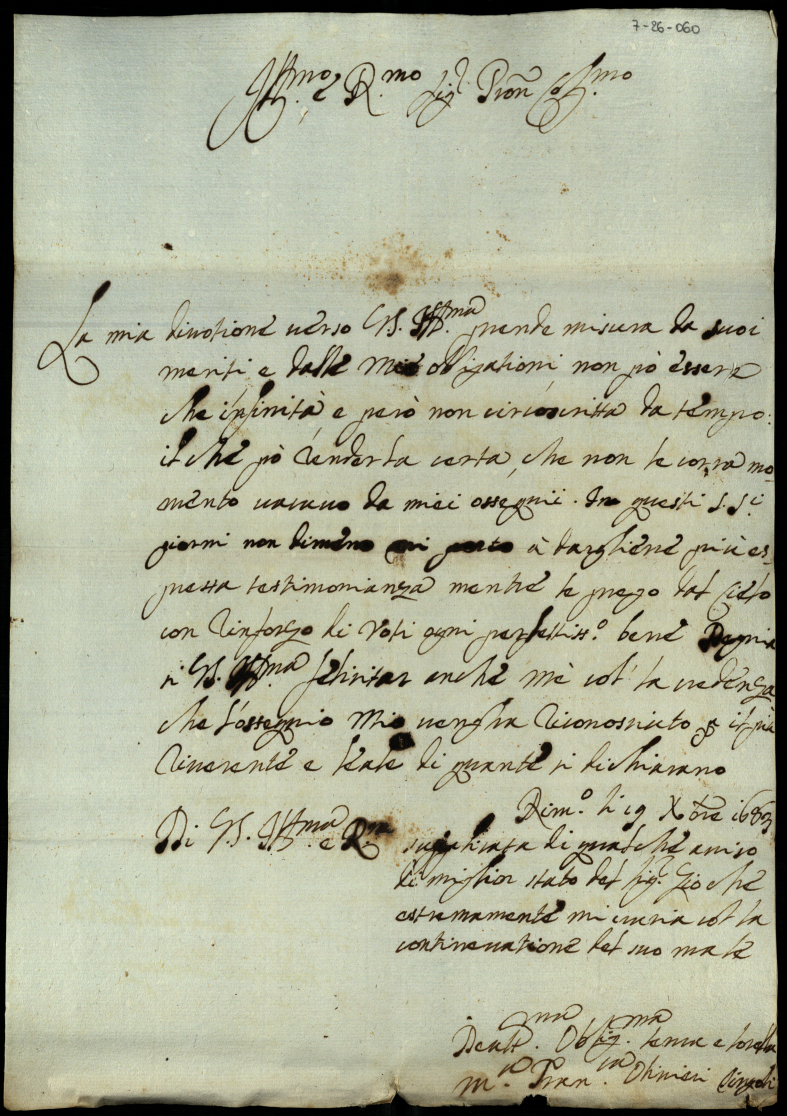 7-26-060
Ill.mo e R.mo Sig.r Pron Col.mo
La mia divotione verso V.S. Ill.ma prende misura da suoi
meriti e dalle mie obligationi non pò essere
che infinita, e però non circonscritta da tempo:
il che pò renderla certa, che non le corra mo-
mento vacuo da miei ossequii. In questi S.S.i
giorni non dimeno mi porto à dargliene più es-
pressa testimonianza mentre le prego dal Cielo
con rinforzo di Voti ogni perfettiss.o bene Degnia
si V.S. Ill.ma felicitar anche me col la credenza
che l'ossequio mio venghia riconosciuto p il più
riverente e leale di quante si dichiarano
Rim.o li 19 Xbre 1683
Di V.S. Ill.ma e R.ma supplicata di qualche aviso
di miglior stato del Sig.r Gio che
estremamente mi curia col la
continuatione del suo male
Devot.ma Oblig.ma serva e sorella
M.a Fran.ca Olivieri Cingoli